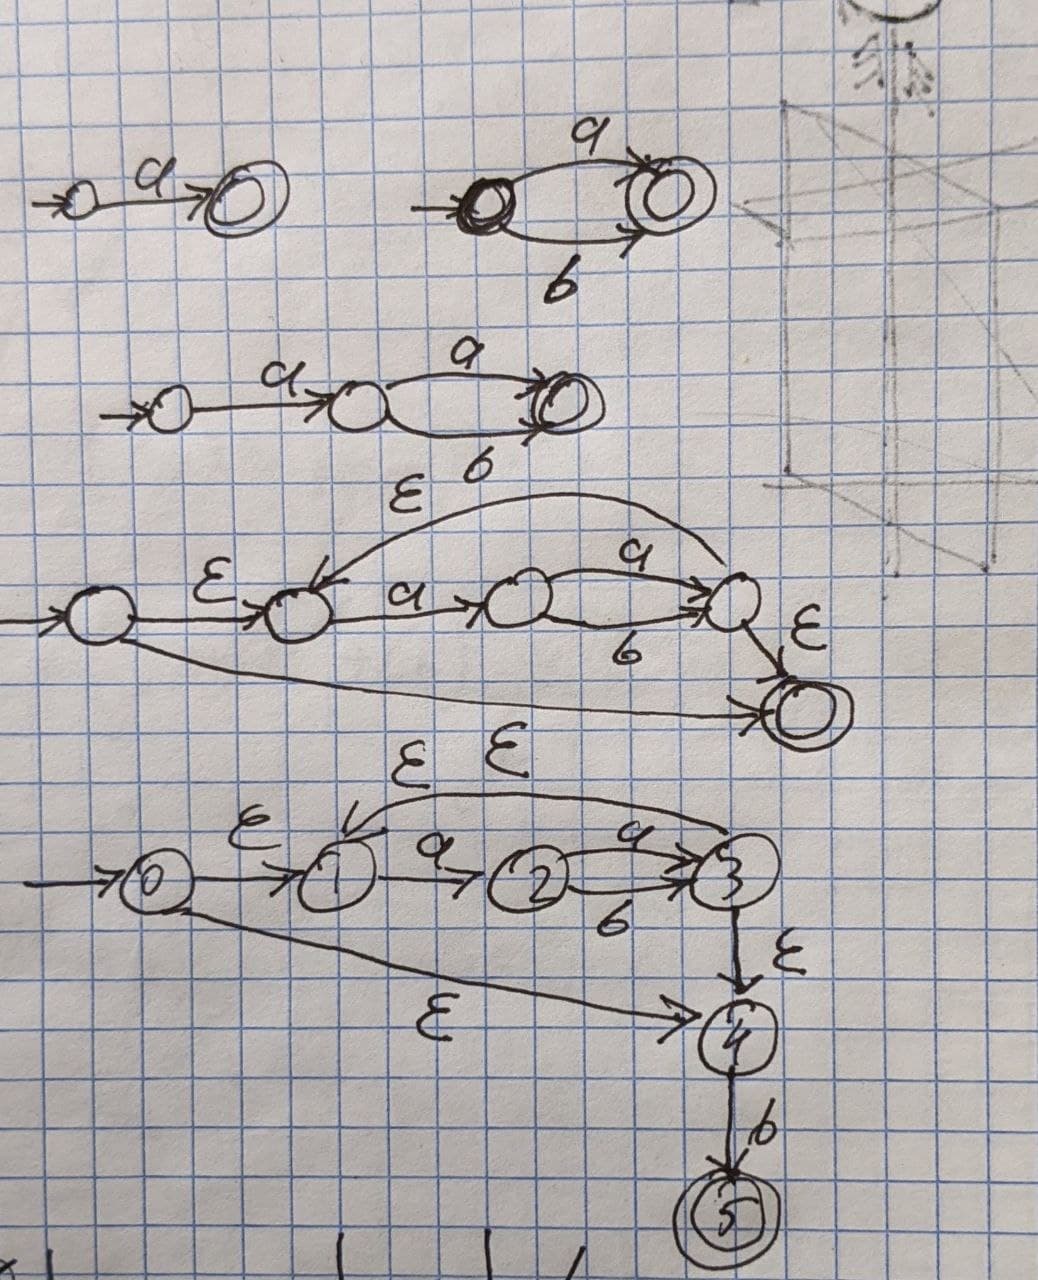 a a
b
a a
b
ε
ε a a
b ε
ε
ε
ε a a
0 1 2 3
b
ε
ε
4
b
5